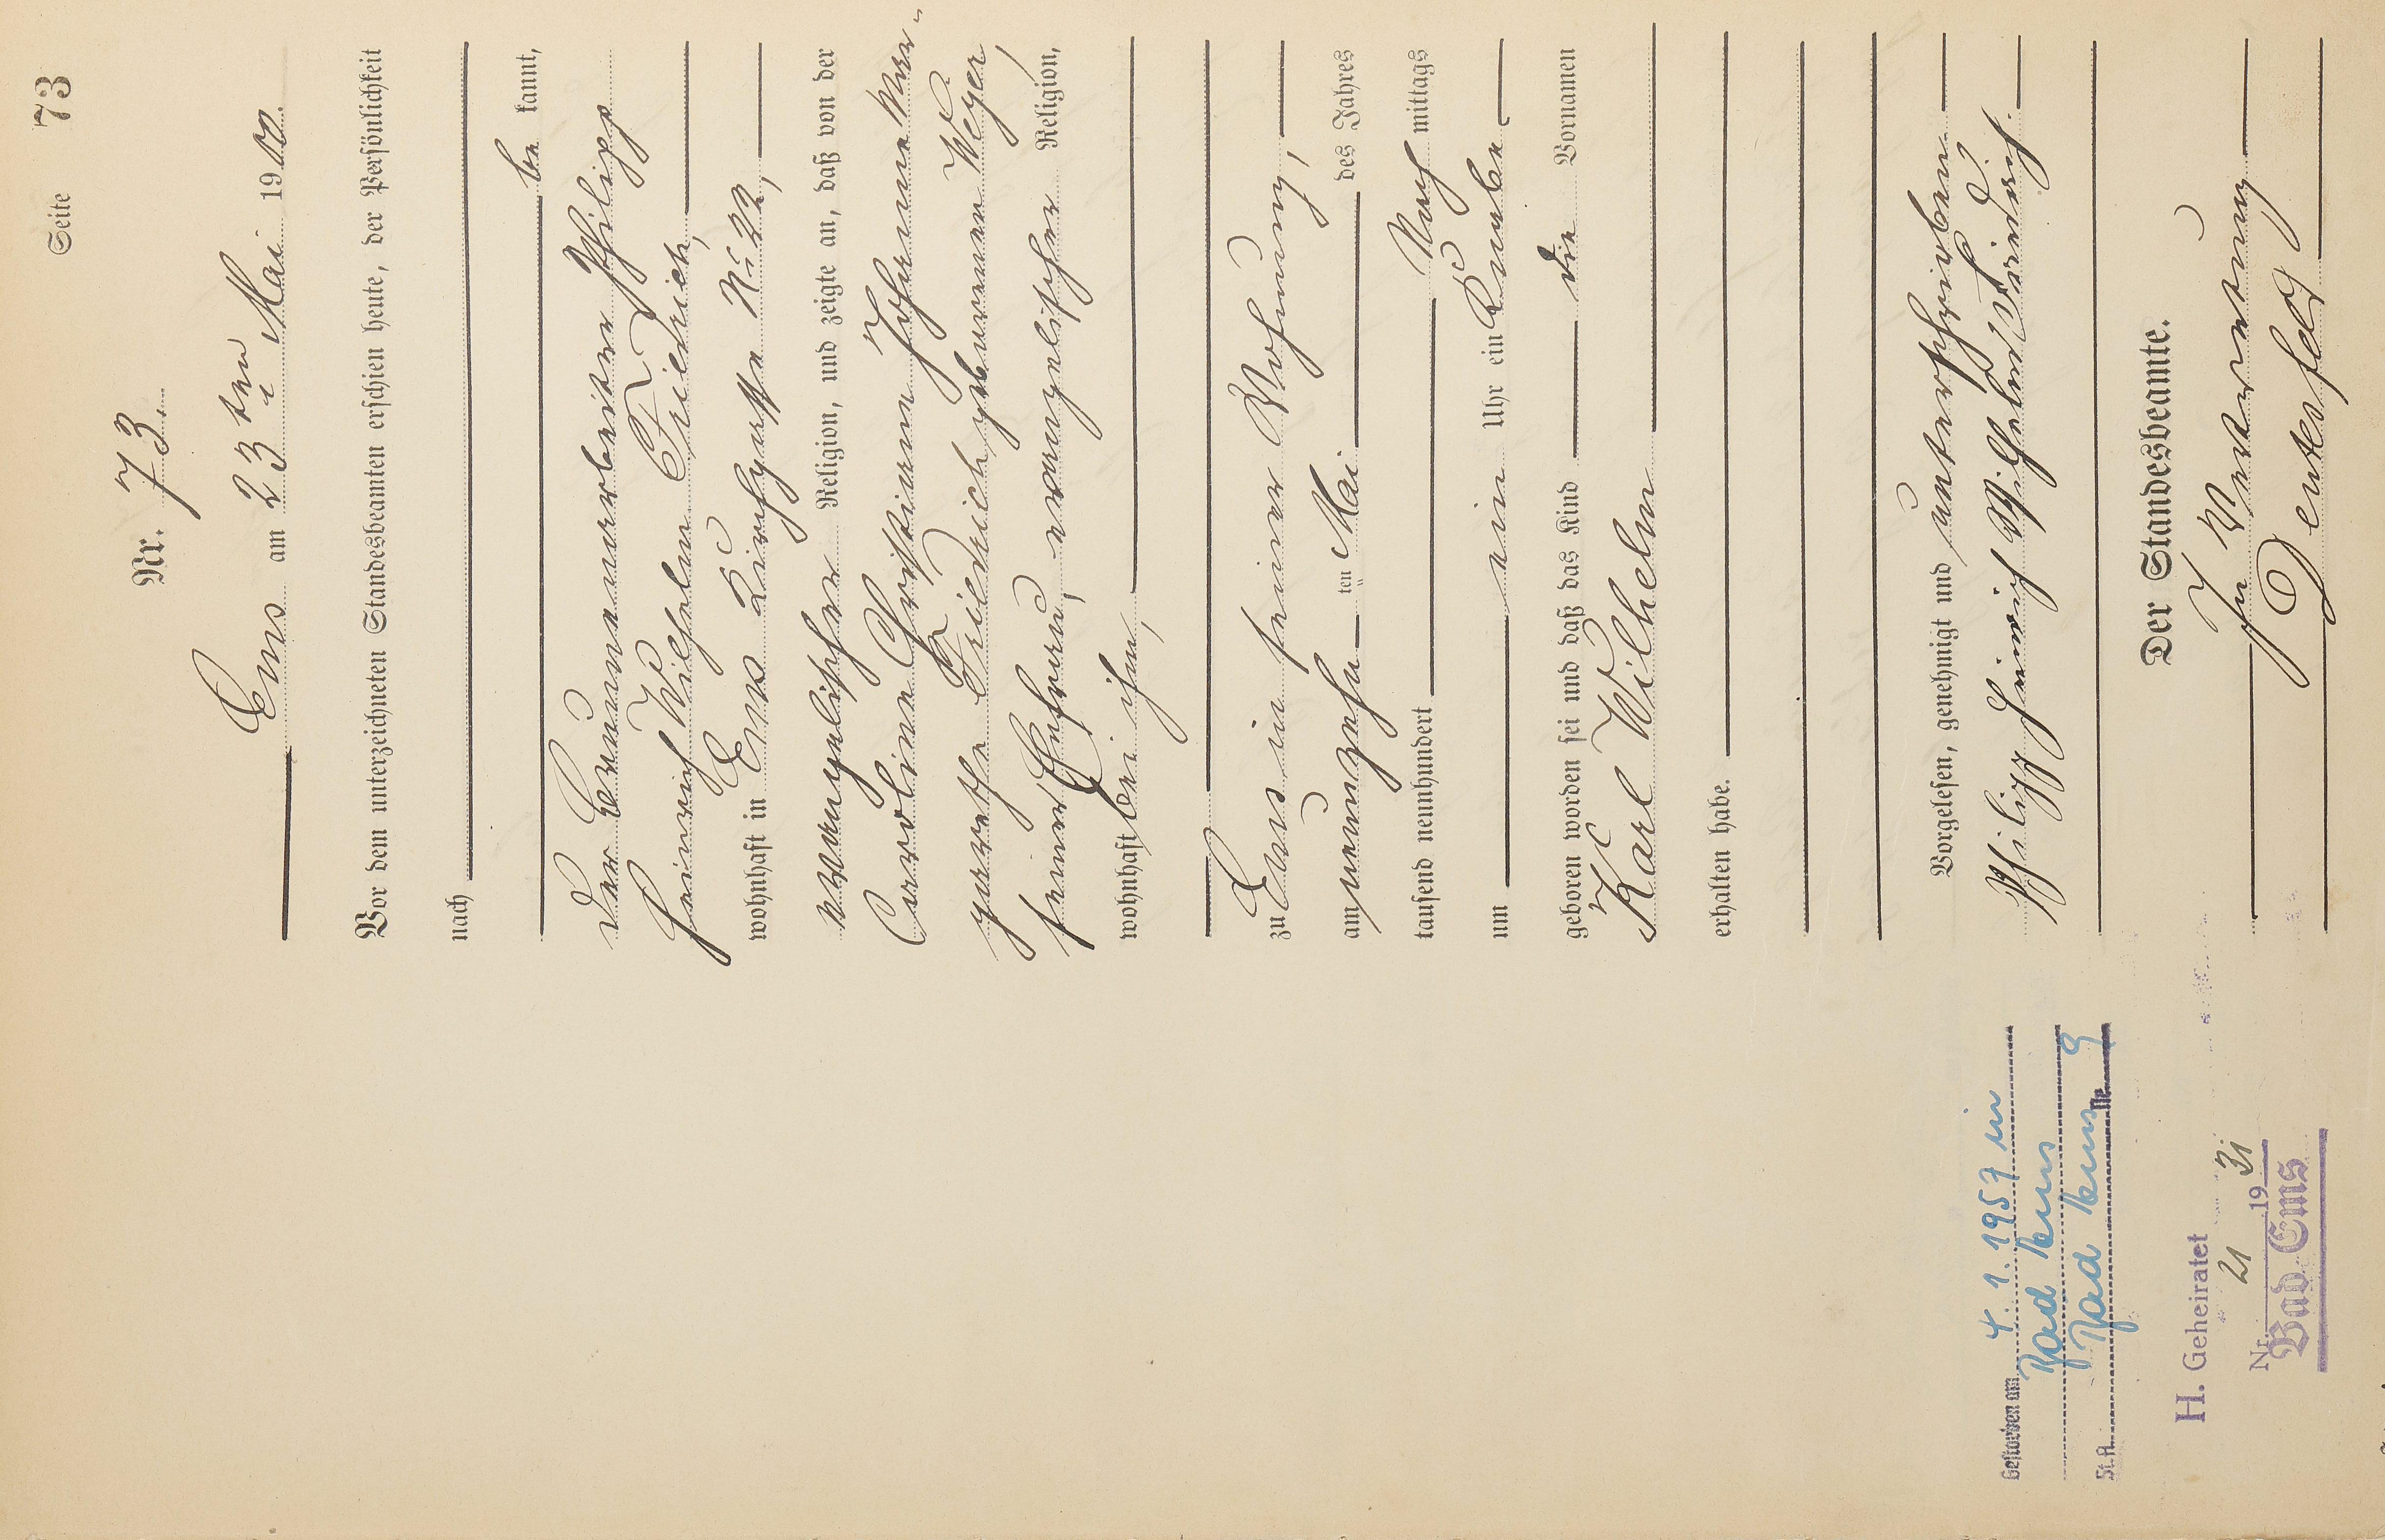 Seite 73
Nr. 73.
Ems am 23ten Mai 1900.
Vor dem unterzeichneten Standesbeamten erschien heute, der Persönlichkeit
nach
be kannt,
der Brunnenarbeiter Philipp
Heinrich Wilhelm Friedrich,
wohnhaft in Ems Kirchgasse No 22,
evangelischer Religion, und zeigte an, daß von der
Caroline Christiane Johanna Mar-
garethe Friedrich geborenen Weyer,
seiner Ehefrau, evangelischer Religion,
wohnhaft bei ihm,
zu Ems in seiner Wohnung,
am neunzehn ten Mai des Jahres
tausend neunhundert Nach mittags
um ein Uhr ein Knabe
geboren worden sei und daß das Kind die Vornamen
Karl Wilhelm
erhalten habe.
Vorgelesen, genehmigt und unterschrieben
Philipp Heinrich Wilhelm Friedrich.
Der Standesbeamte.
In Vertretung
Deutesfeld
Gestorben am 4. 1. 1957 in
Bad Ems
St.A. Bad Ems Nr. 9
H. Geheiratet
Nr. 21 1931
Bad Ems